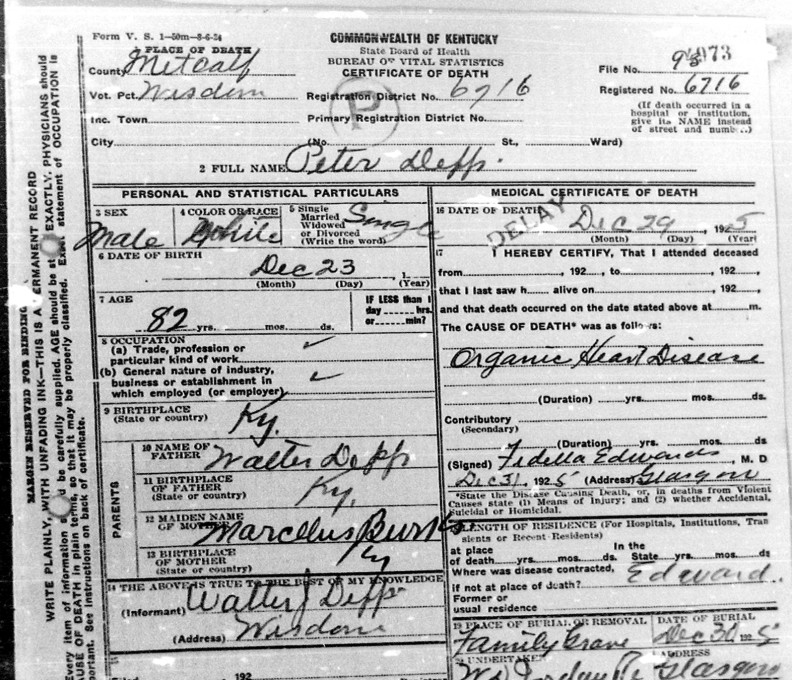 Form V. S. 1-50m-8-6-24
COMMONWEALTH OF KENTUCKY
State Board of Health
BUREAU OF VITAL STATISTICS
CERTIFICATE OF DEATH
PLACE OF DEATH
County Metcalf
Vot. Pct. Wisdom
Inc. Town
City
Registration District No. 6716
Primary Registration District No.
(No. St., Ward)
File No.
Registered No. 6716
(If death occurred in a
hospital or institution,
give its NAME instead
of street and number.)
P
2 FULL NAME Peter Depp.
PERSONAL AND STATISTICAL PARTICULARS
3 SEX Male
4 COLOR OR RACE White
5 Single
Married
Widowed
or Divorced
(Write the word)
Single
6 DATE OF BIRTH
Dec 23 , 1
(Month) (Day) (Year)
7 AGE
82 yrs. mos. ds.
IF LESS than 1
day hrs.
or min?
8 OCCUPATION
(a) Trade, profession or
particular kind of work
(b) General nature of industry,
business or establishment in
which employed (or employer)
9 BIRTHPLACE
(State or country) Ky.
PARENTS
10 NAME OF
FATHER Walter Depp
11 BIRTHPLACE
OF FATHER
(State or country) Ky.
12 MAIDEN NAME
OF MOTHER Marcelus Burks
13 BIRTHPLACE
OF MOTHER
(State or country) Ky
14 THE ABOVE IS TRUE TO THE BEST OF MY KNOWLEDGE
(Informant) Walter J Depp
(Address) Wisdom
15
Filed 192
MEDICAL CERTIFICATE OF DEATH
16 DATE OF DEATH
DELAY
Dec 29 , 1925
(Month) (Day) (Year)
17 I HEREBY CERTIFY, That I attended deceased
from , 192 , to , 192 ,
that I last saw h alive on , 192 ,
and that death occurred on the date stated above at m.
The CAUSE OF DEATH* was as follows:
Organic Heart Disease
(Duration) yrs. mos. ds.
Contributory
(Secondary)
(Duration) yrs. mos. ds
(Signed) Fidella Edwards, M. D
Dec 31, 1925 (Address) Glasgow
*State the Disease Causing Death, or, in deaths from Violent
Causes state (1) Means of Injury; and (2) whether Accidental,
Suicidal or Homicidal.
LENGTH OF RESIDENCE (For Hospitals, Institutions, Tran
sients or Recent Residents)
at place
of death yrs. mos. ds.
In the
State yrs. mos. ds
Where was disease contracted,
if not at place of death?
Edward.
Former or
usual residence
19 PLACE OF BURIAL OR REMOVAL
Family Grave
DATE OF BURIAL
Dec 30 1925
20 UNDERTAKER
ADDRESS
Glasgow
MARGIN RESERVED FOR BINDING